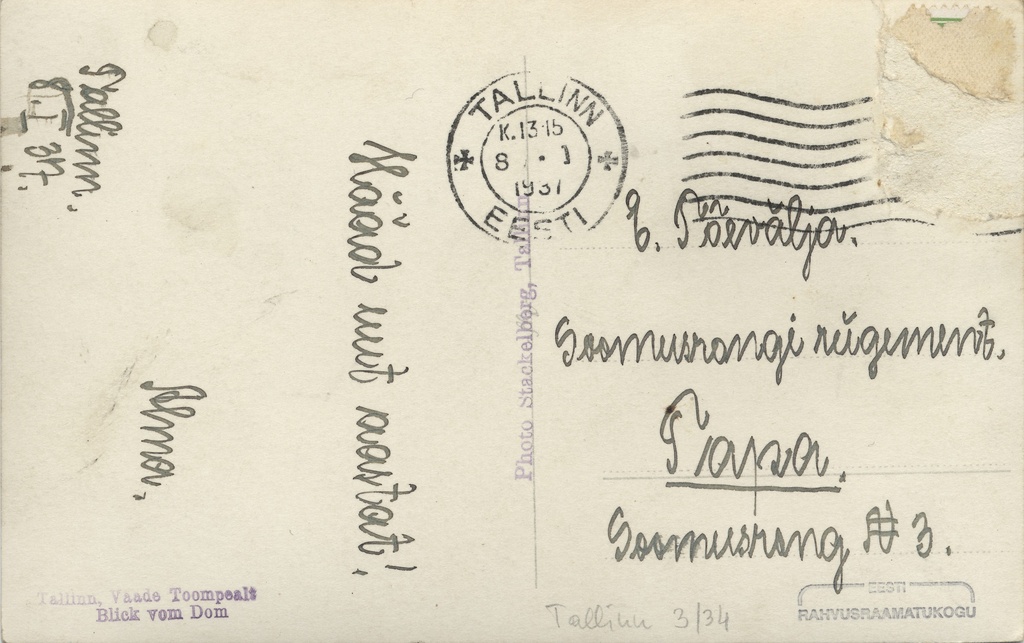 Tallinn.
8. I 37.
Hääd uut aastat!
Alma.
TALLINN
K. 13-15
8 . . 1
1937
EESTI
E. Tõevälja.
Soomusrongi rügement.
Tapa.
Soomusrong N 3.
Photo Stackelberg, Tallinn
Tallinn, Vaade Toompealt
Blick vom Dom
Tallinn 3/34
EESTI
RAHVUSRAAMATUKOGU